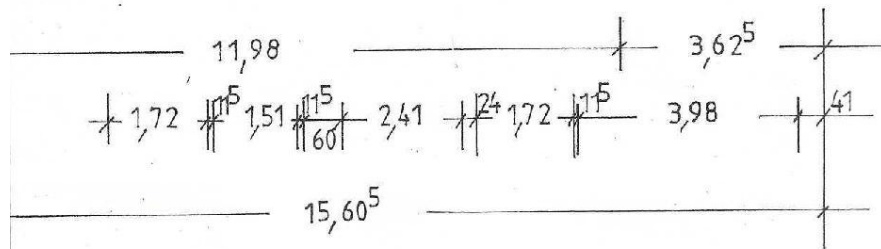 11,98 3,62⁵
1,72 11⁵ 1,51 11⁵ 60 2,41 24 1,72 11⁵ 3,98 41
15,60⁵